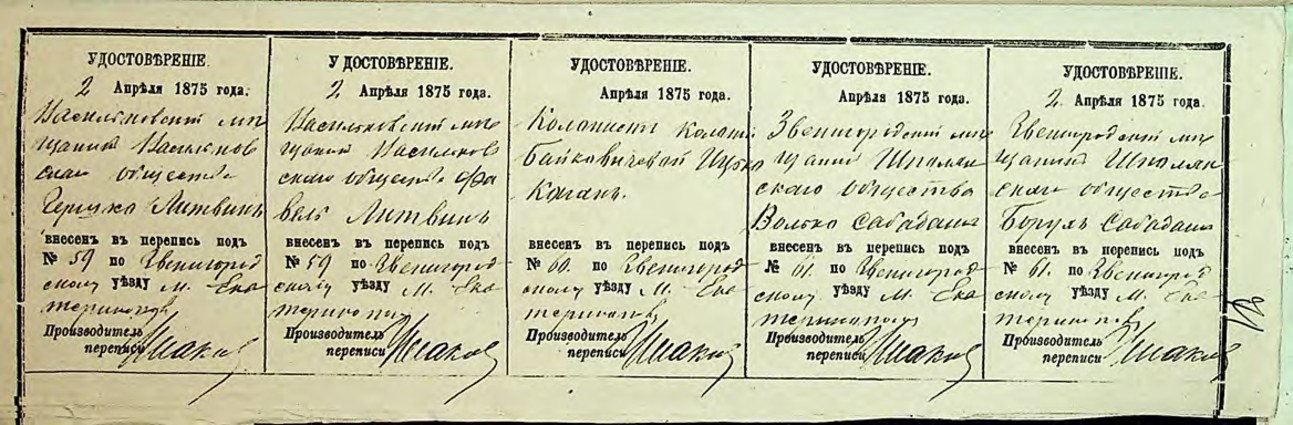 УДОСТОВѢРЕНІЕ.
2 Апрѣля 1875 года.
Васильковскій мѣ
щанинъ Васильков
скаго общества
Гершко Литвинъ
внесенъ въ перепись подъ
№ 59 по Звенигород
скому уѣзду М. Ека
теринополь
Производитель
переписи
УДОСТОВѢРЕНІЕ.
2. Апрѣля 1875 года.
Васильковскій мѣ
щанинъ Васильков
скаго общества
Литвинъ
внесенъ въ перепись подъ
№ 59 по Звенигород
скому уѣзду М. Ека
теринополь
Производитель
переписи
УДОСТОВѢРЕНІЕ.
Апрѣля 1875 года.
Колонистъ Колоніи
Ицько
Каганъ.
внесенъ въ перепись подъ
№ 60. по Звенигород
скому уѣзду М. Ека
теринополь
Производитель
переписи
УДОСТОВѢРЕНІЕ.
Апрѣля 1875 года.
Звенигородскій мѣ
щанинъ Шполян
скаго общества
Волько Сабадашъ
внесенъ въ перепись подъ
№ 61. по Звенигород
скому уѣзду М. Ека
теринополь
Производитель
переписи
УДОСТОВѢРЕНІЕ.
2. Апрѣля 1875 года.
Звенигородскій мѣ
щанинъ Шполян
скаго общества
Борухъ Сабадашъ
внесенъ въ перепись подъ
№ 61. по Звенигород
скому уѣзду М. Ека
теринополь
Производитель
переписи